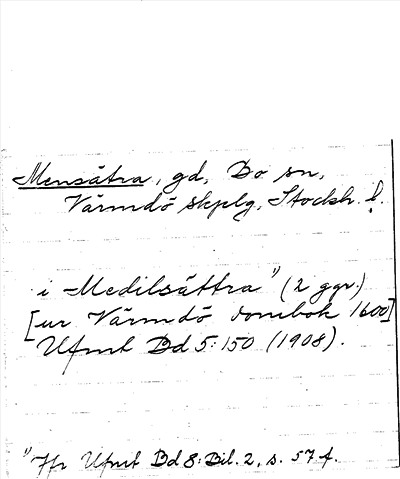 Mensätra, gd, Bo sn,
Värmdö skplg, Stockh. l.
i Medilsättra 1) (2 ggr.)
[ur Värmdö dombok 1600]
Ufmt Bd 5:150 (1908).
1) Jfr Ufmt Bd 8: Bil. 2, s. 57 f.